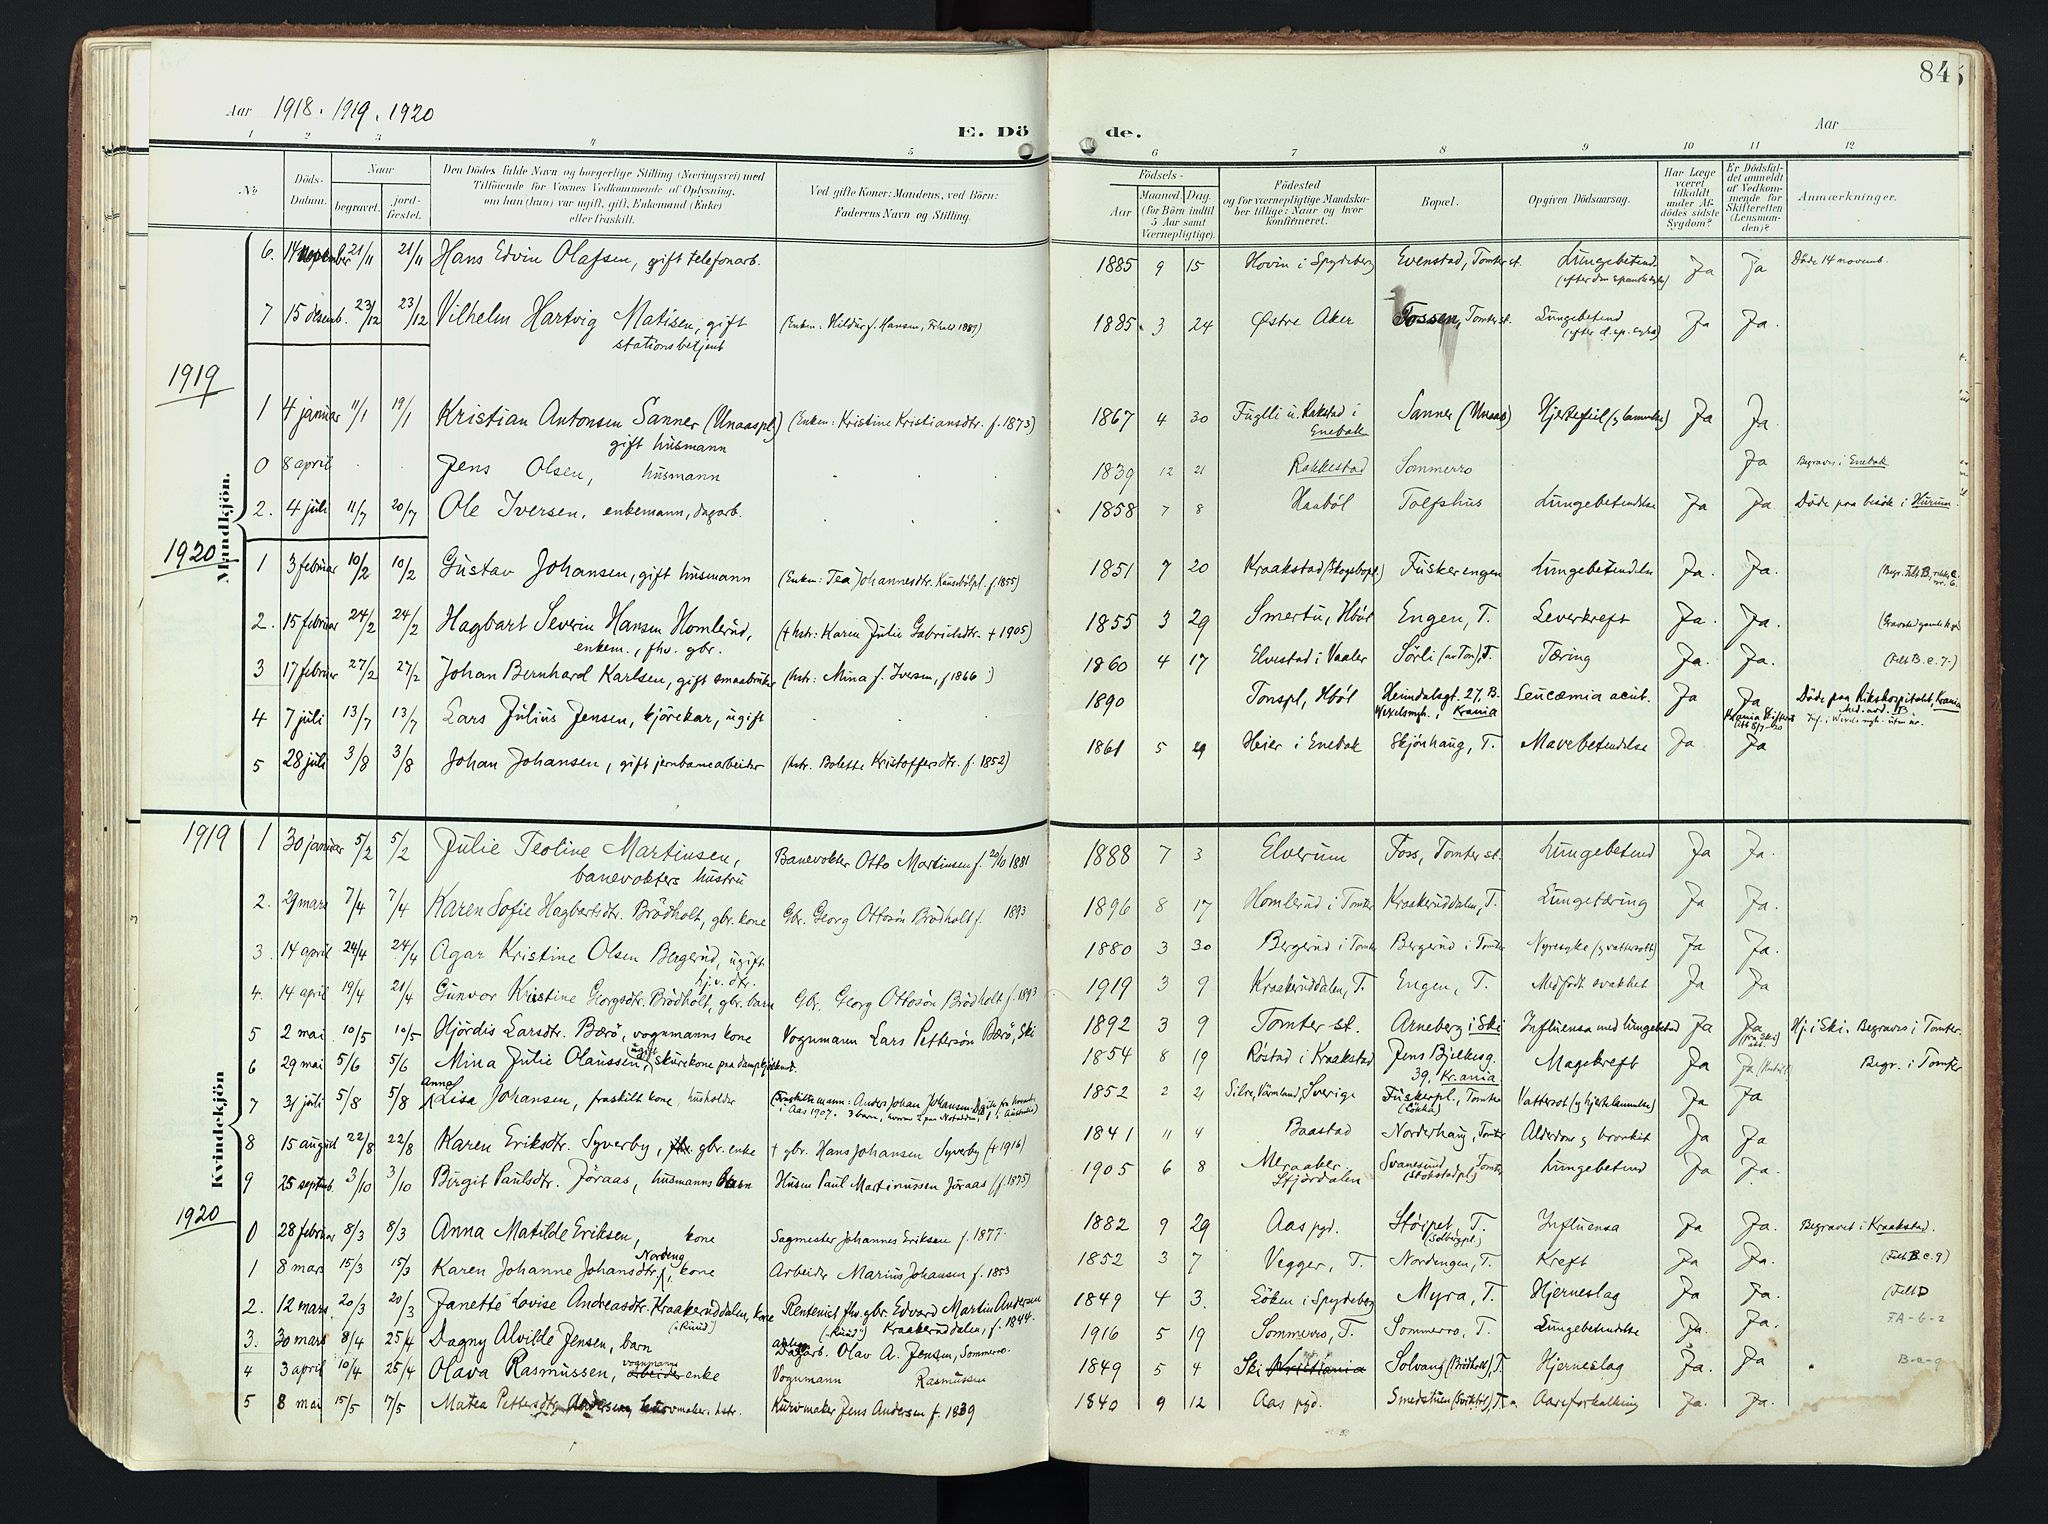 84
Aar 1918. 1919. 1920
E. Dö de.
Aar
1 2 3 4 5 6 7 8 9 10 11 12
No. Döds-Datum. Naar begravet. jordfæstet. Den Dödes fulde Navn og borgerlige Stilling (Næringsvei) med Tilföiende for Voxnes Vedkommende af Oplysning, om han (hun) var ugift, gift, Enkemand (Enke) eller fraskilt. Ved gifte Koner: Mandens, ved Börn: Faderens Navn og Stilling. Födsels- Aar Maaned. Dag. (for Börn indtil 5 Aar samt Værnepligtige). Födested og for værnepligtige Mandskaber tillige: Naar og hvor konfirmeret. Bopæl. Opgiven Dödsaarsag. Har Læge været tilkaldt under Afdödes sidste Sygdom? Er Dödsfaldet anmeldt af Vedkommende for Skifteretten (Lensmanden)? Anmærkninger.
Mandkjön.
6. 14 november 21/11 21/11 Hans Edvin Olafsen, gift telefonarb. 1885 9 15 Hovin i Spydeberg Evenstad, Tomter st. Lungebetend. (efter den spanske syke) Ja Ja Döde 14 novemb.
7 15 desemb. 23/12 23/12 Vilhelm Hartvig Matisen, gift stationsbetjent (Enken: Hildur f. Hansen, 1889) 1885. 3 24 Østre Aker Fossen, Tomter st. Lungebetend (efter d. sp. syke) Ja Ja.
1919
1 4 januar 11/1 19/1 Kristian Antonsen Sanner (Unaaspl.) gift husmann (Enken: Kristine Kristiansdtr. f. 1873) 1867 4 30 Fuglli u. Rakstad i Enebak Sanner (Unaas) Hjertefeil Ja Ja.
0 8 april Jens Olsen, husmann 1839 12 21 Rakkestad Sommerro Ja Begraves i Enebak
2. 4 juli 11/7 20/7 Ole Iversen, enkemann, dagarb. 1858 7 8 Haaböl Tolfshus Lungebetendelse Ja Ja. Döde paa besök i Hurum.
1920
1 3 februar 10/2 10/2 Gustav Johansen, gift husmann (Enken: Tea Johannesdtr. f. 1855) 1851 7 20 Kraakstad (Skogsbopl.) Fuskerengen Lungebetendelse Ja. Ja.
2. 15 februar 24/2 24/2 Hagbart Severin Hansen Homlerud, enkem., fhv. gbr. (+ hstr: Karen Julie Gabrielsdtr. + 1905) 1855 3 29 Smertu, Hböl Engen, T. Leverkreft Ja. Ja.
3 17 februar 27/2 27/2 Johan Bernhard Karlsen, gift smaabruker (hstr: Mina f. Iversen, f. 1866) 1860 4 17 Elvestad i Vaaler Sörli, T. Tæring Ja. Ja. (Felt B. c. 7.)
4 7 juli 13/7 13/7 Lars Julius Jensen, kjörekar, ugift 1890 Tonspl, Hböl Heimdalsgt. 27, B. i Krania Leucæmia acut. Ja Ja Döde paa Rikshospitalet, Krania
5 28 juli 3/8 3/8 Johan Johansen, gift jernbanearbeider (hstr. Bolette Kristoffersdtr. f. 1852) 1861 5 29 Heier i Enebak Skjönhaug, T. Mavebetendelse Ja Ja
Kvindekjön
1919
1 30 januar 5/2 5/2 Julie Teoline Martinsen, banevokters hustru Banevokter Otto Martinsen f. 1881 1888 7 3 Elverum Foss, Tomter st. Lungebetend Ja Ja.
2. 29 mars 7/4 7/4 Karen Sofie Hagbartsdtr. Brödholt, gbr. kone Gbr. Georg Ottosön Brödholt f. 1893 1896 8 17 Homlerud i Tomter Kraakeruddalen, T. Lungetæring Ja Ja.
3. 14 april 24/4 24/4 Agar Kristine Olsen Bergerud, ugift hj.v. dtr. 1880 3 30 Bergerud i Tomter Bergerud i Tomter Nyresyke (og vattersott) Ja Ja.
4. 14 april 19/4 21/4 Gunvor Kristine Georgsdtr. Brödholt, gbr. barn Gbr. Georg Ottosön Brödholt f. 1893 1919 3 9 Kraakeruddalen, T. Engen, T. Medfödt svakhet Ja Ja
5 2 mai 10/5 10/5 Hjördis Larsdtr. Bærö, vognmanns kone Vognmann Lars Pettersön Bærö, Ski 1892 3 9 Tomter st. Arneberg i Ski Influensa med lungebetend Ja Ja Hj. i Ski. Begraves i Tomter.
6 29 mai 5/6 5/6 Mina Julie Olaussen, ugift skurekone paa 1854 8 19 Röstad i Kraakstad Jens Bjelkesg. 39, Krania Magekreft Ja Ja Begr. i Tomter
7 31 juli 5/8 5/8 Anna Lisa Johansen, fraskilt kone, husholder 1852 2 21 Silre, Värmland, Sverige Fuskerpl., Tomter Vattersot Ja Ja.
8 15 august 22/8 22/8 Karen Eriksdtr. Syverby, gbr. enke + gbr. Hans Johansen Syverby (+ 1916) 1841 11 4 Baastad Norderhaug, Tomter Alderdom og bronkit Ja Ja
9 25 septemb. 3/10 3/10 Birgit Paulsdtr. Jöraas, husmanns barn Husm Paul Martinussen Jöraas (f. 1875) 1905 6 8 Meraaker Stjördalen Svanesund (Stokstadpl.) Tomter Lungebetend Ja Ja.
1920
0 28 februar 8/3 8/3 Anna Matilde Eriksen, kone Sagmester Johannes Eriksen f. 1877. 1882 9 29 Aas pgd. Stöipet, T. (Solbergpl.) Influensa Ja Ja. Begravet i Kraakstad.
1 8 mars 15/3 15/3 Karen Johanne Johansdtr. Nordeng, kone Arbeider Marius Johansen f. 1853 1852 3 7 Vegger, T. Nordengen, T. Kreft Ja Ja. (Felt B c. 9)
2. 12 mars. 20/3 20/3 Janette Lovise Andreasdtr. Kraakeruddalen, kone (Ruud) Rentenist fhv. gbr. Edvard Martin Andersen (Ruud) Kraakeruddalen, f. 1844. 1849 4 3. Löken i Spydeberg Myra, T. Hjerneslag Ja Ja. (Felt D
3. 30 mars 8/4 25/4 Dagny Alvilde Jensen, barn Dagarb. Olav A. Jensen, Sommerro. 1916 5 19 Sommerro, T. Sommerro, T. Lungebetendelse Ja. Ja. FA-6-2
4 3 april 10/4 25/4 Olava Rasmussen, vognmann arbeider enke Vognmann Rasmussen 1849 5 4 Ski Kristiania Solvang (Brödholt), T. Hjerneslag Ja. Ja B-c-9
5 8 mai 15/5 17/5 Matea Pettersdtr. Andersen, kurvmaker. hstr. Kurvmaker Jens Andersen f. 1839 1840 9 12 Aas pgd. Smedstuen, T. Aareforkalkning Ja. Ja.